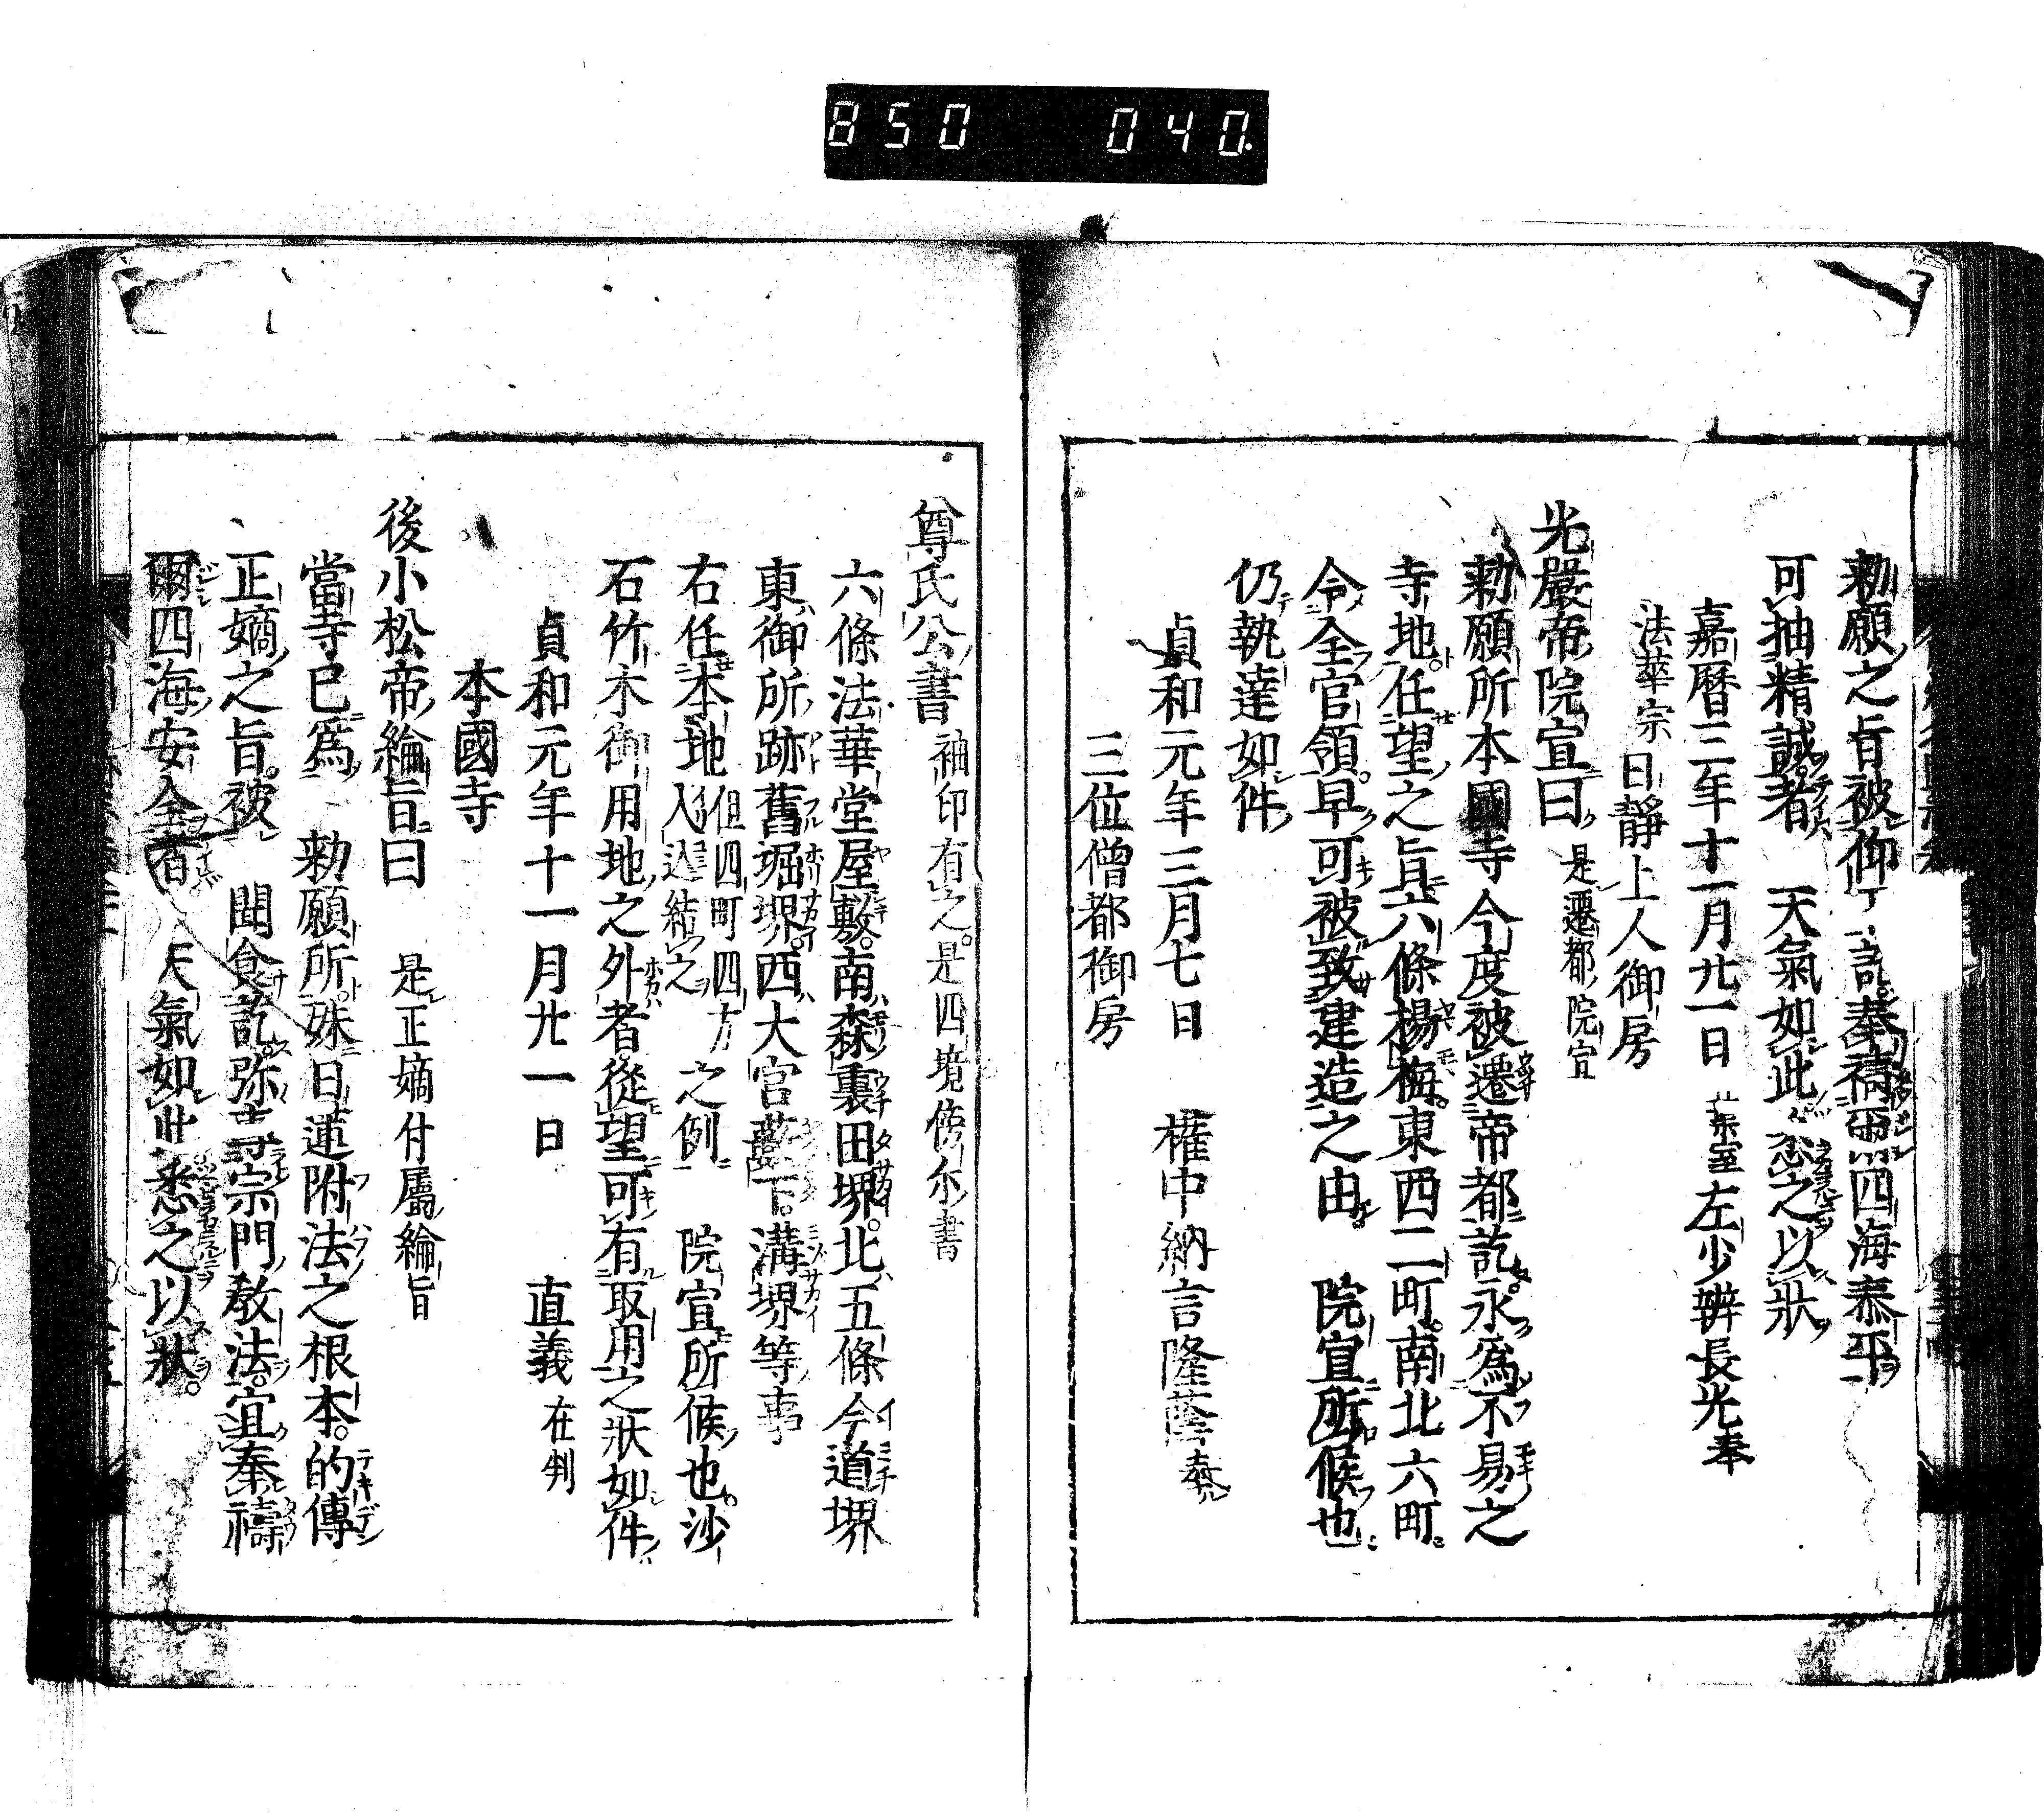 850 040.
勅願之旨被仰下訖奉禱爾四海泰平
可抽精誠者 天氣如此悉之以狀
嘉曆三年十一月廿一日 左少辨長光奉
法華宗 日靜上人御房
光嚴帝院宣曰 是遷都院宣
勅願所本國寺今度被遷帝都訖永爲不易之
寺地任望之旨六條楊梅東西二町南北六町
令全官領早可被致建造之由 院宣所候也
仍執達如件
貞和元年三月七日 權中納言隆蔭奉
三位僧都御房
尊氏公書 袖印有之是四境傍尓書
六條法華堂屋敷南森裏田堺北五條今道堺
東御所跡舊堀堺西大宮藪下溝堺等事
右任本地入迯結之但四町四方之例 院宣所候也沙
石竹木御用地之外者從望可有取用之狀如件
貞和元年十一月廿一日 直義 在判
本國寺
後小松帝綸旨曰 是正嫡付屬綸旨
當寺已爲 勅願所殊日蓮附法之根本的傳
正嫡之旨被 聞食訖弥專宗門教法宜奉禱
爾四海安全者 天氣如此悉之以狀